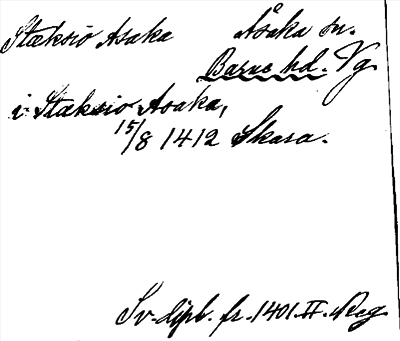 Stæksio Asaka Åsaka sn.
Barne hd. Vg.
i Stæksio Asaka,
15/8 1412 Skara.
Sv. dipl. fr. 1401. II. Reg.